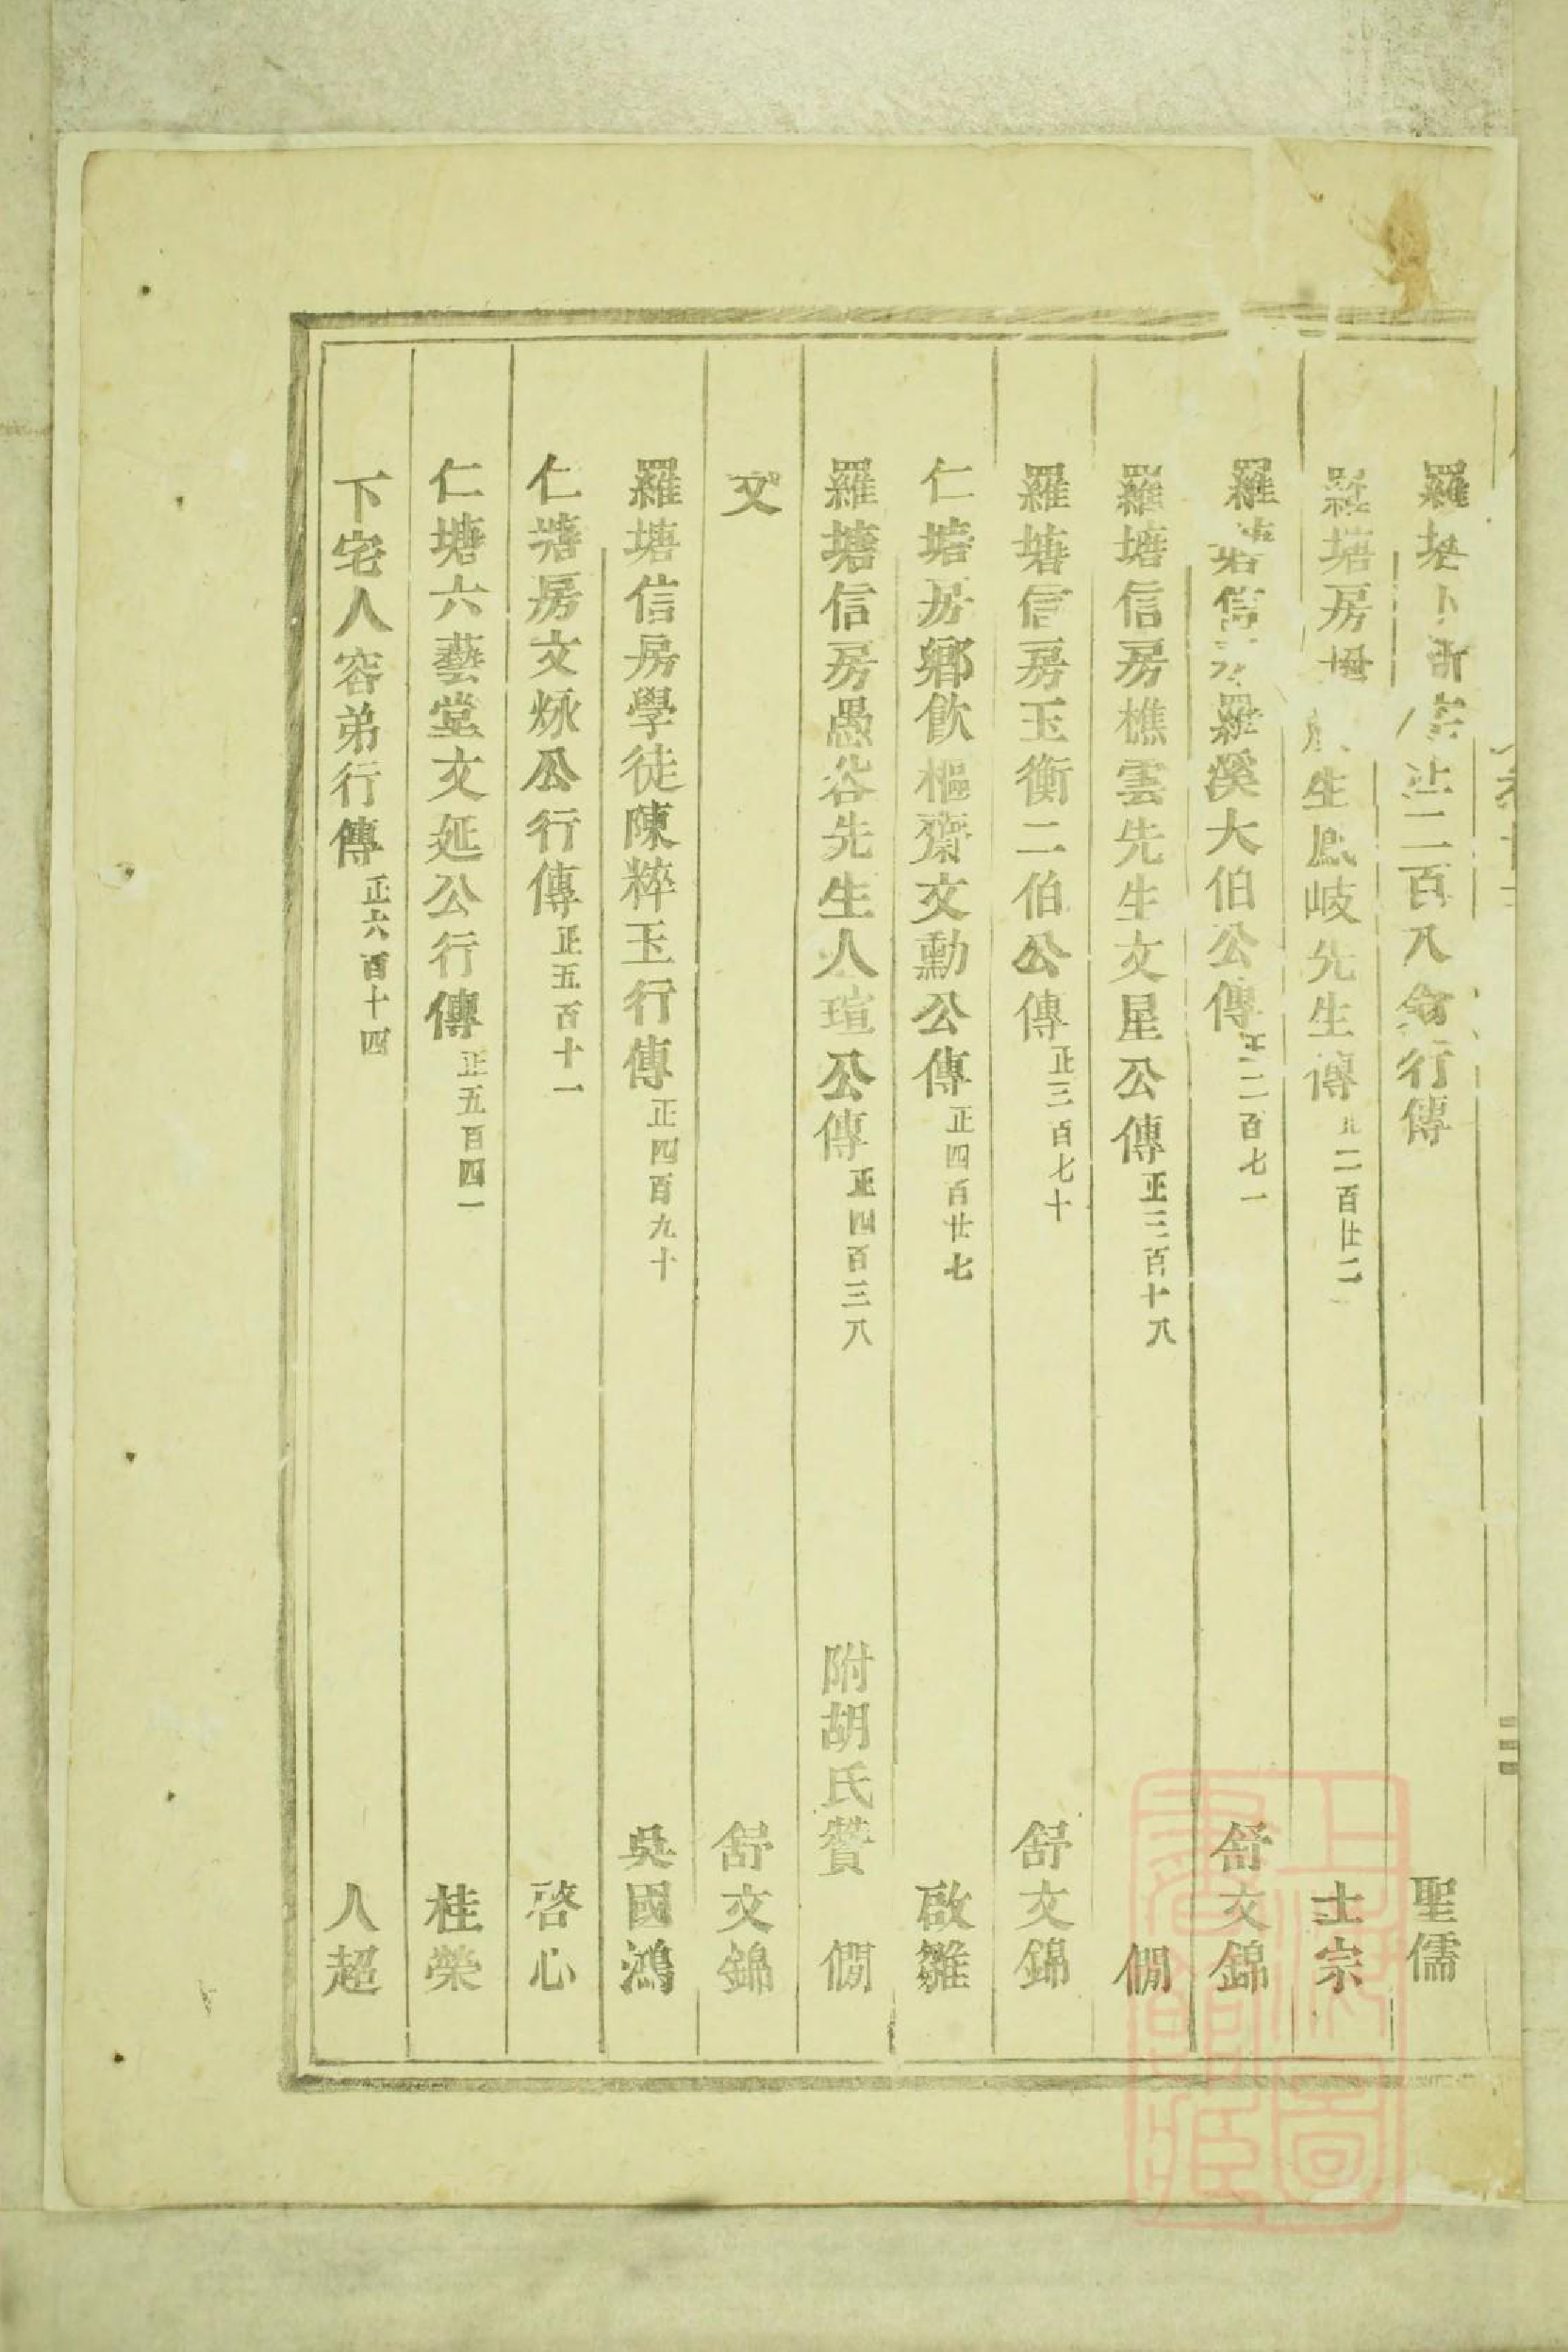 羅塘 二百八 行傳 聖儒
羅塘房 生鳳岐先生傳 二百廿二 士宗
羅塘信 羅溪大伯公傳 正二百七一 舒文錦
羅塘信房樵雲先生文星公傳 正三百十八 僩
羅塘信房玉衡二伯公傳 正三百七十 舒文錦
仁塘房鄉飲樞齋文勳公傳 正四百廿七 啟雒
羅塘信房愚谷先生人瑄公傳 正四百三八 附胡氏贊 僩
又 舒文錦
羅塘信房學徒陳粹玉行傳 正四百九十 吳國鴻
仁塘房文炢公行傳 正五百十一 啓心
仁塘六藝堂文延公行傳 正五百四一 桂榮
下宅人容弟行傳 正六百十四 人超